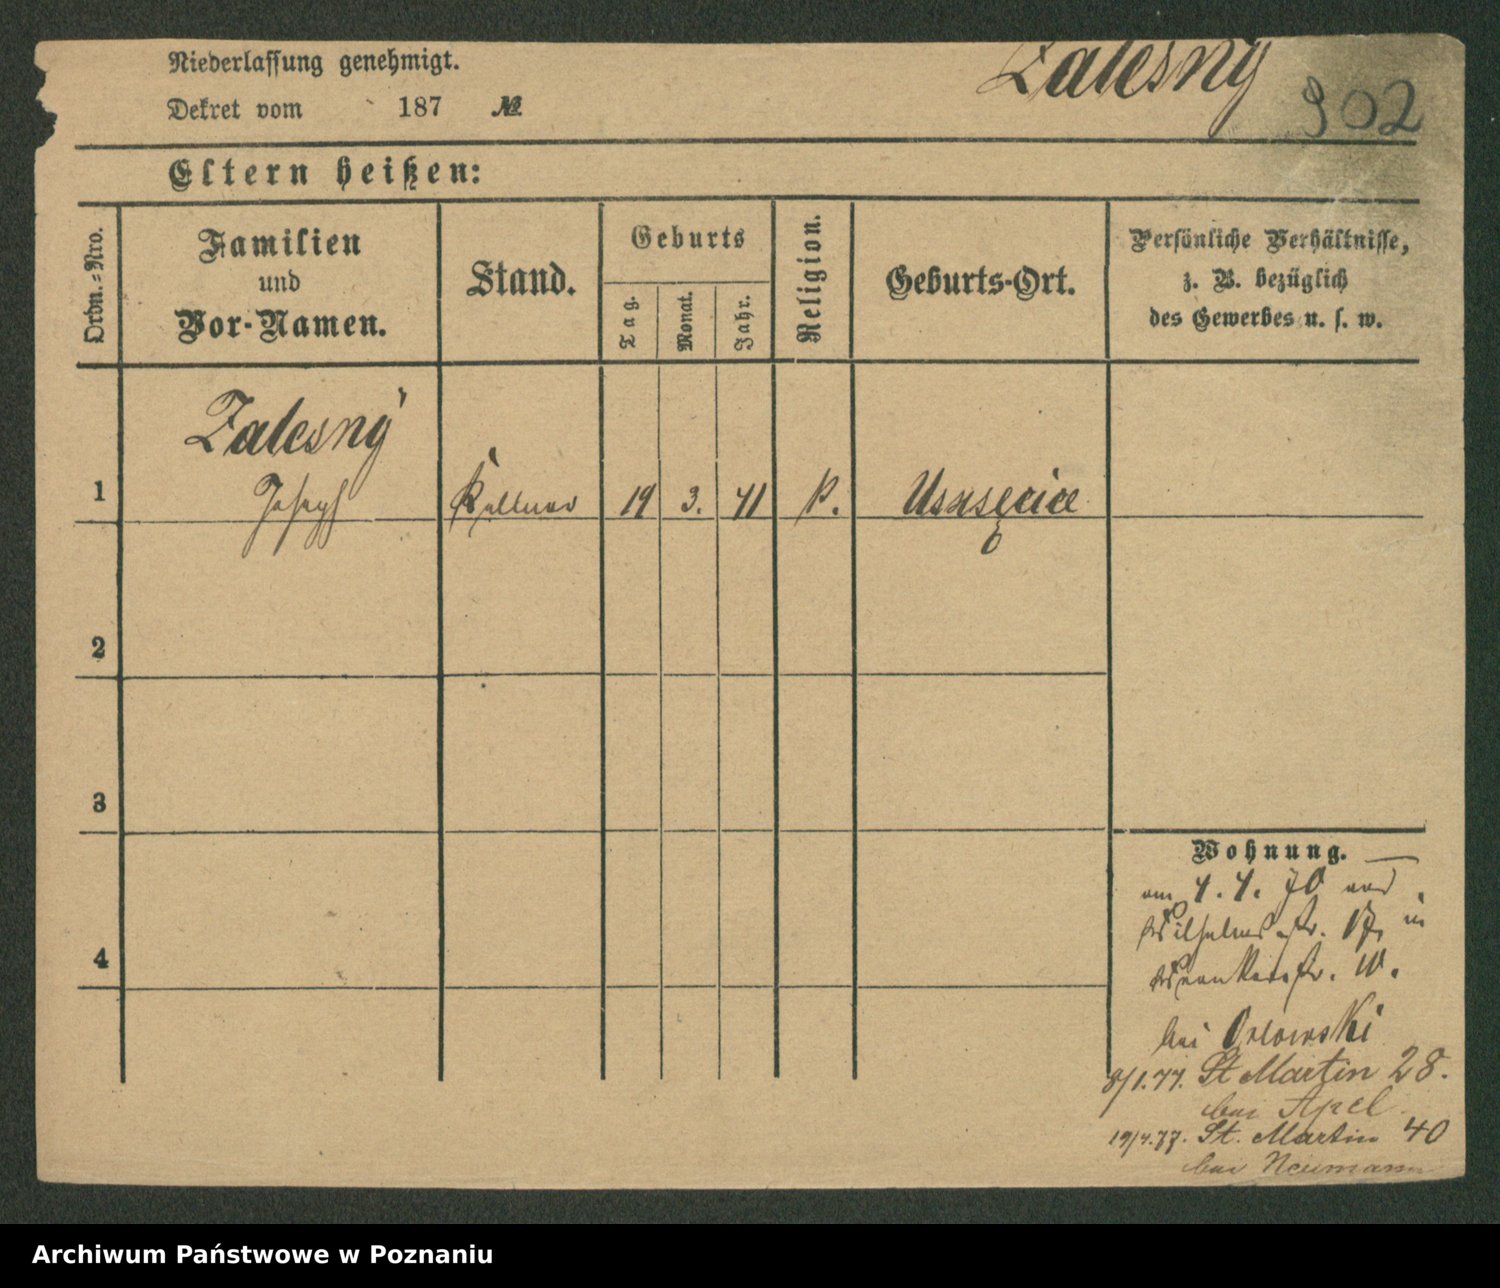 Niederlassung genehmigt.
Zalesny
902
Dekret vom 187 №
Eltern heißen:
Ordn.-Nro.
Familien
und
Vor-Namen.
Stand.
Geburts
Tag.
Monat.
Jahr.
Religion.
Geburts-Ort.
Persönliche Verhältnisse,
z. B. bezüglich
des Gewerbes u. s. w.
Zalesny
1 Joseph Kellner 19 3. 41 k.
2
3
Wohnung.
am 4. 4. 70 von
Wilhelmsstr. 17, in
4
str. 10.
bei Orlowski
8/1.77. St Martin 28.
bei Apel
19/4.77. St. Martin 40
bei Neumann
Archiwum Państwowe w Poznaniu